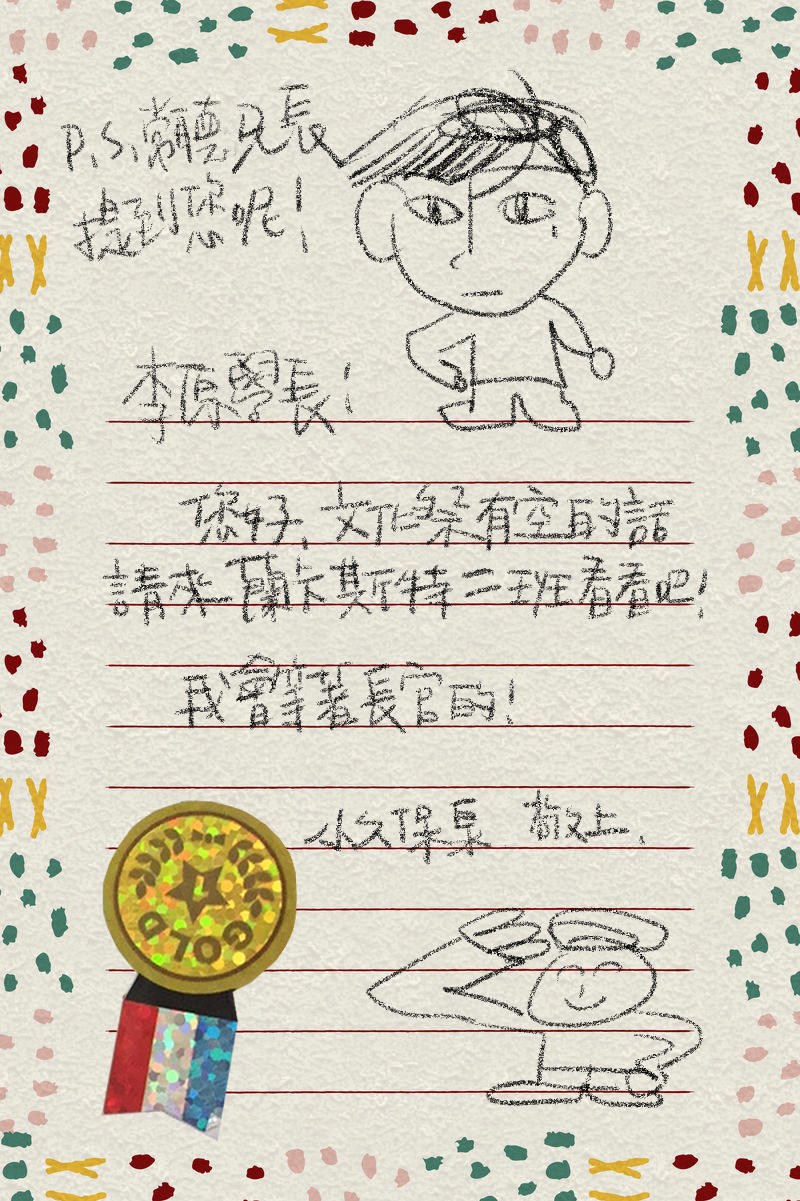 P.S.常聽兄長
提到您呢!
李原學長!
您好,文化祭有空的話
請來蘭卡斯特二班看看吧!
我會等著長官的!
小久保杲 敬上.
GOLD